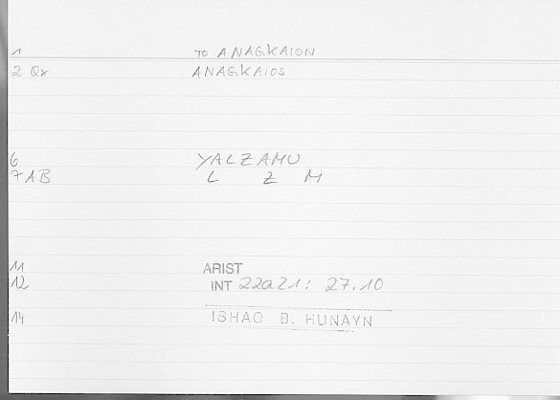 1 TO ANAGKAION
2 Qr ANAGKAIOS
6 YALZAMU
7 AB L Z M
11 ARIST
12 INT 22a21: 27.10
14 ISHAQ B. HUNAYN